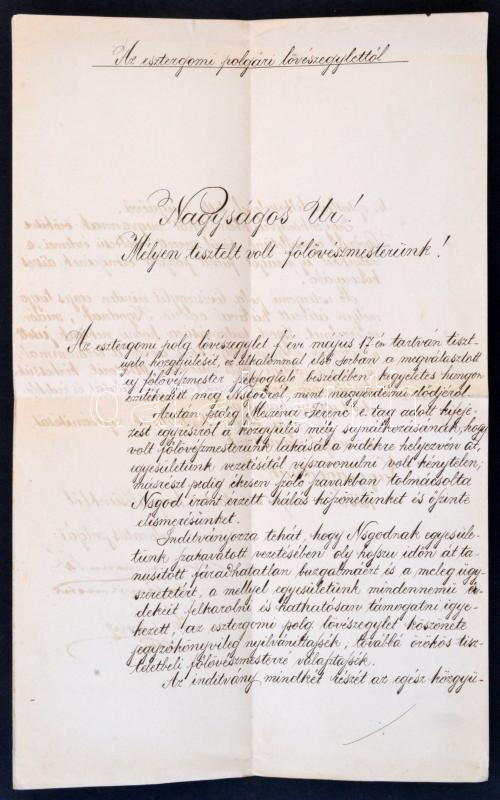 Az esztergomi polgári lövészegylettől
Nagyságos Ur!
Mélyen tisztelt volt fölövészmesterünk!
Az esztergomi polg lövészegylet f. évi május 17-én tartván tiszt-
ujitó közgyülését, ez alkalommal első sorban a megválasztott
uj fölövészmester székfoglaló beszédében kegyeletes hangon
emlékezett meg Nsgodról mint nagyérdemü elődjéről.
Azután pedig Meszéna Ferencz e. tag adott kifeje-
zést egyrészről a közgyülés mély sajnálkozásának, hogy
volt fölövészmesterünk lakását a vidékre helyezvén át,
egyesületünk vezetésétől visszavonulni volt kénytelen,
másrészt pedig ékesen szóló szavakban tolmácsolta
Nsgod iránt érzett hálás köszönetünket és őszinte
elismerésünket.
Inditványozza tehát, hogy Nsgodnak egyesüle-
tünk szakavatott vezetésében oly hosszu időn át ta-
nusitott fáradhatatlan buzgalmáért és a meleg ügy-
szeretetért, a mellyel egyesületünk mindennemü ér-
dekeit felkarolni és hathatósan támogatni igye-
kezett, az esztergomi polg lövészegylet köszönete
jegyzőkönyvileg nyilvánittassék, továbbá örökös tisz-
teletbeli fölövészmesterré választassék.
Az inditvány mindkét részét az egész közgyü-